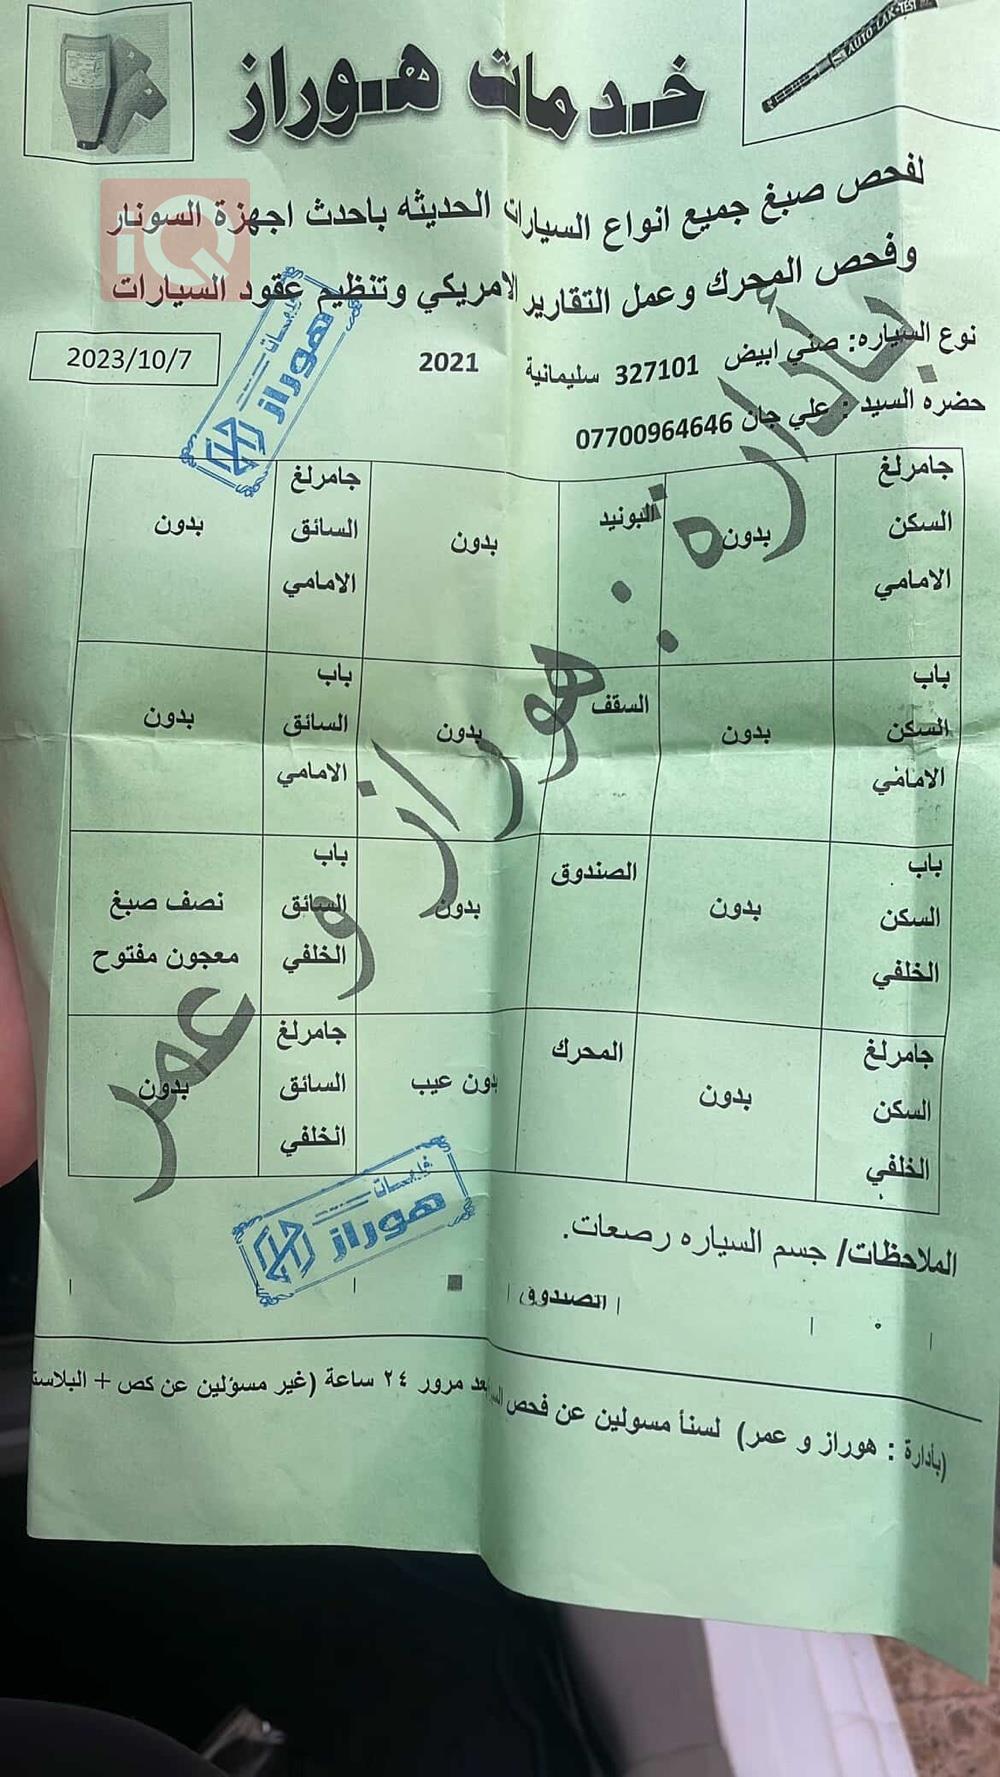 خدمات هوراز
AUTO-LAK-TEST
لفحص صبغ جميع انواع السيارات الحديثه باحدث اجهزة السونار
iQ
وفحص المحرك وعمل التقارير الامريكي وتنظيم عقود السيارات
نوع السياره: صني ابيض 327101 سليمانية 2021
2023/10/7
حضره السيد : علي جان 07700964646
هوراز
جامرلغ السكن الامامي بدون البونيد بدون جامرلغ السائق الامامي بدون
باب السكن الامامي بدون السقف بدون باب السائق الامامي بدون
باب السكن الخلفي بدون الصندوق بدون باب السائق الخلفي نصف صبغ معجون مفتوح
جامرلغ السكن الخلفي بدون المحرك بدون عيب جامرلغ السائق الخلفي بدون
بأداره : هوراز و عمر
الملاحظات/ جسم السياره رصعات.
الصندوق
هوراز
(بأدارة : هوراز و عمر) لسنأ مسولين عن فحص بعد مرور ٢٤ ساعة (غير مسؤلين عن كص + البلاست